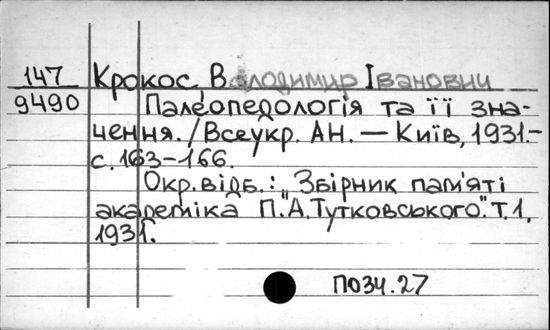 147 Крокос, Володимир Івановии
9490 Палеопедологія та її зна-
чення. /Всеукр. АН. — Київ, 1931.-
с. 163-166.
Окр. відб.: „Збірник пам'яті
академіка П.А. Тутковського". Т. 1,
1931.
ПОЗЧ.27